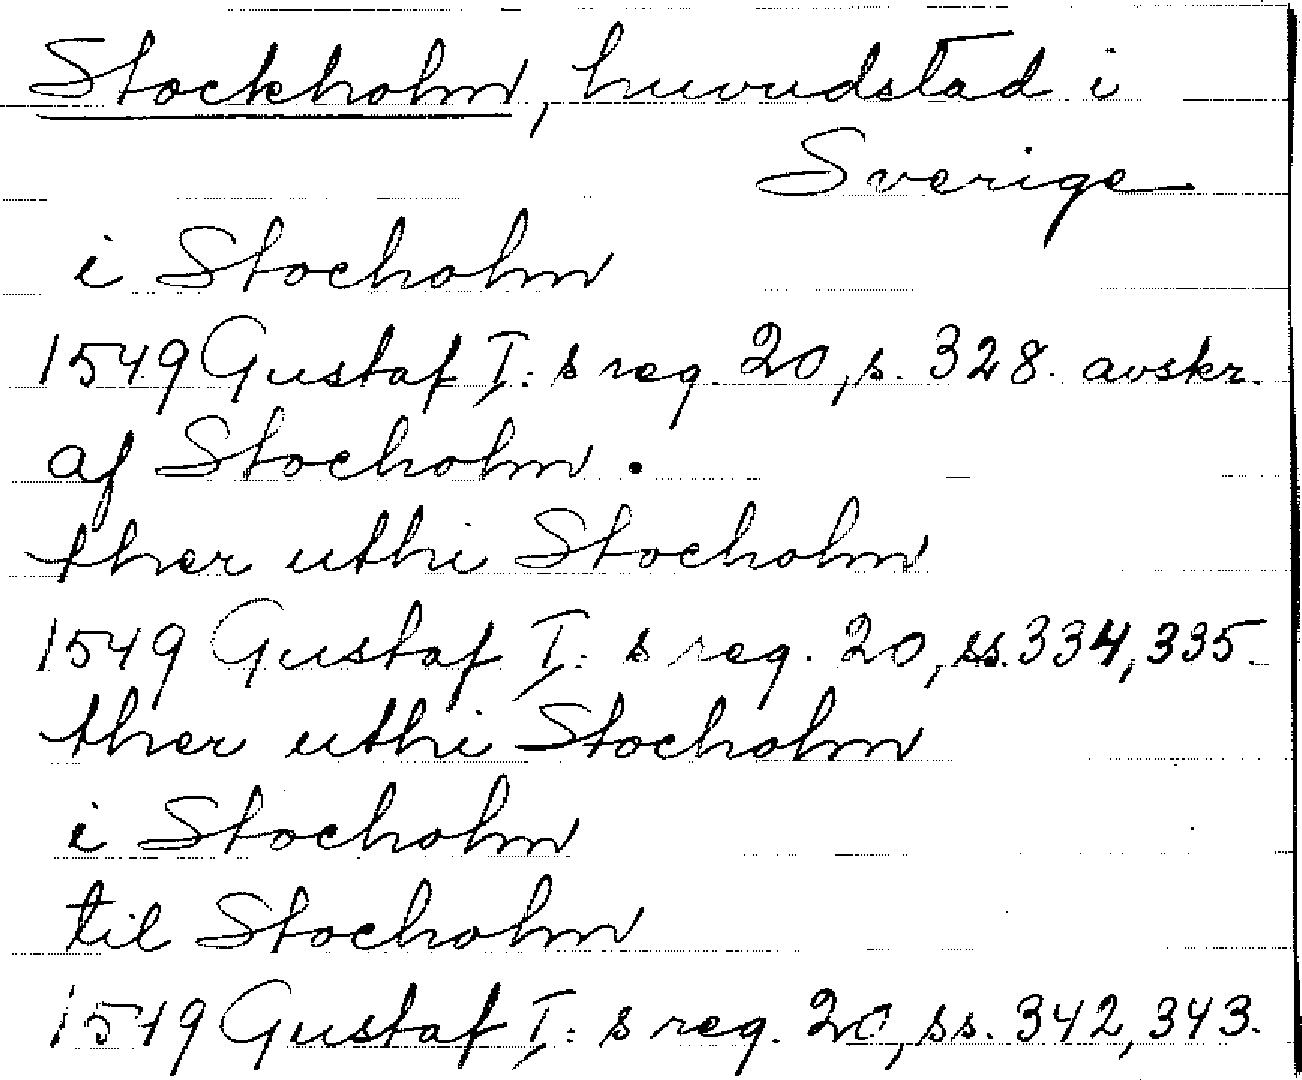 Stockholm, huvudstad i
Sverige
i Stocholm
1549 Gustaf I:s reg. 20, s. 328. avskr.
af Stocholm.
ther uthi Stocholm
1549 Gustaf I:s reg. 20, ss. 334, 335.
ther uthi Stocholm
i Stocholm
til Stocholm
1549 Gustaf I:s reg. 20, ss. 342, 343.